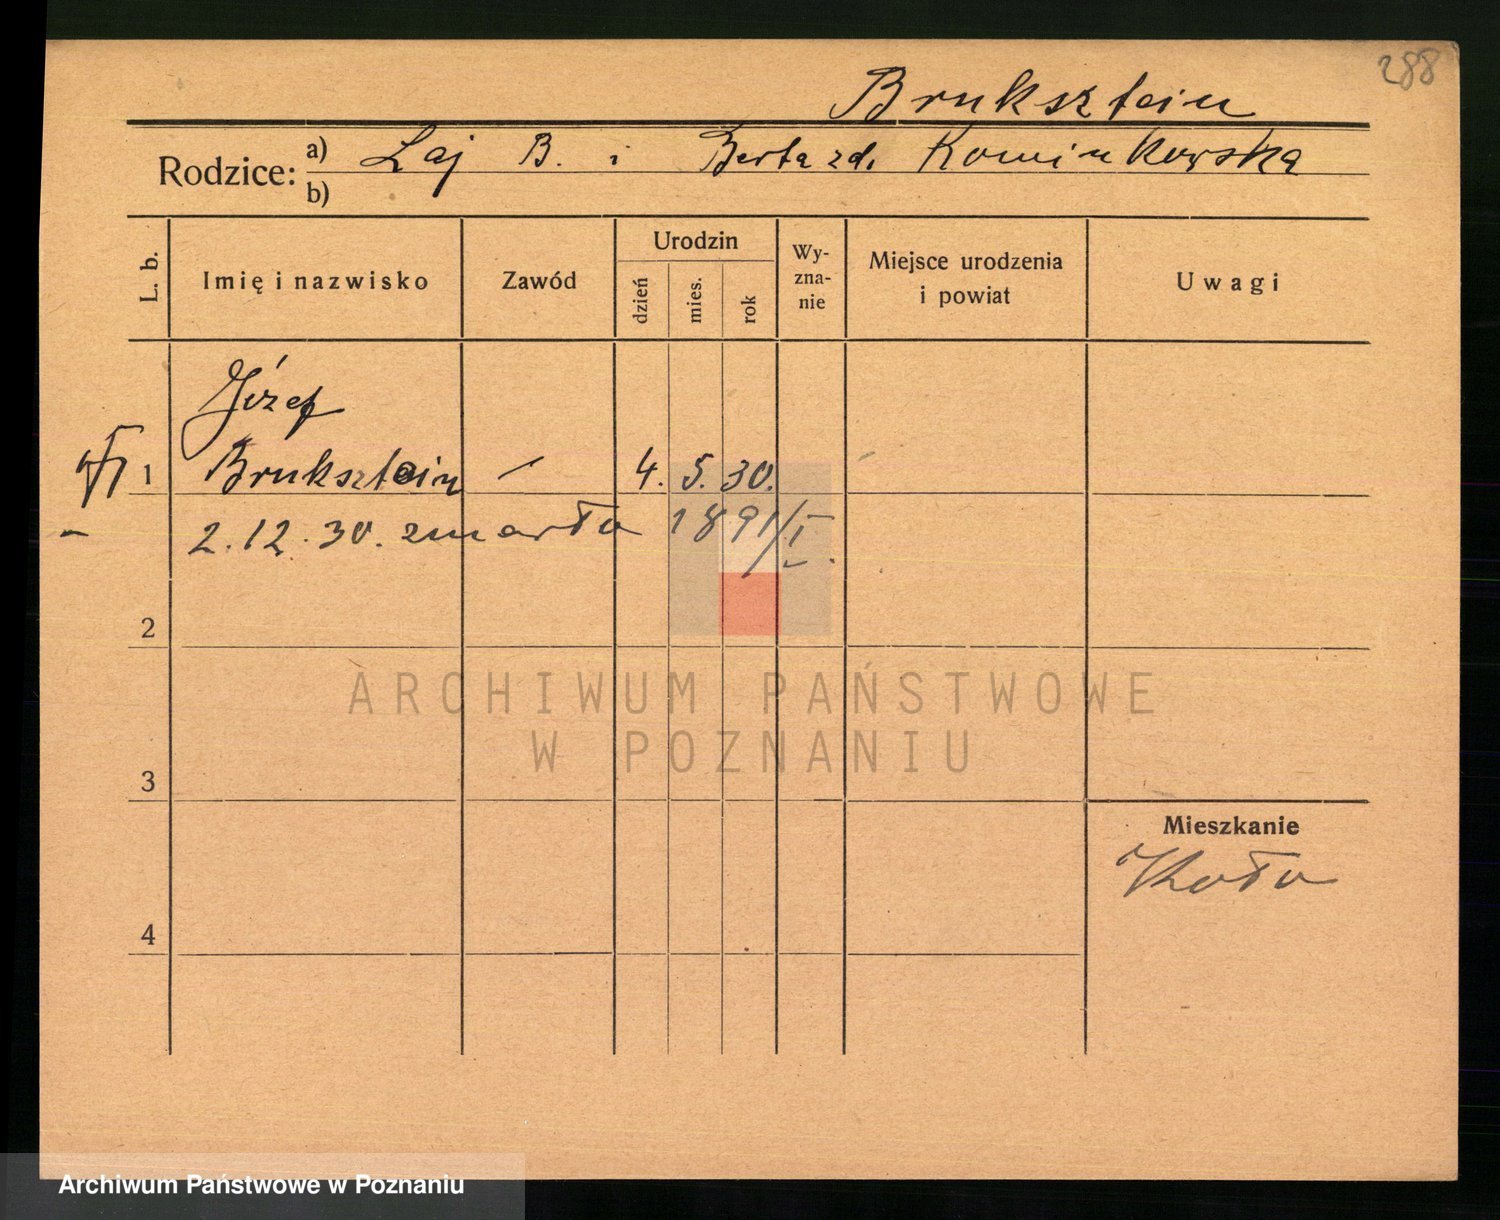 288
Bruksztein
Rodzice: a) Laj B. i Berta zd. Kominkowska
b)
L. b.
Imię i nazwisko
Zawód
Urodzin
dzień
mies.
rok
Wy-
zna-
nie
Miejsce urodzenia
i powiat
Uwagi
Józef
1 Bruksztein – 4. 5. 30.
2. 12. 30. zmarło 1891/I.
2
ARCHIWUM PAŃSTWOWE
W POZNANIU
3
Mieszkanie
Koło
4
Archiwum Państwowe w Poznaniu